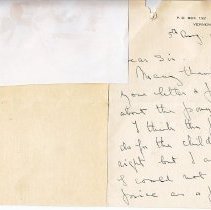 P.O. BOX 192
VERNON
8th Aug
ear Sir.
Many than
your letter &
about the pony
I think the
do for the child
right but I a
I could not
price as a